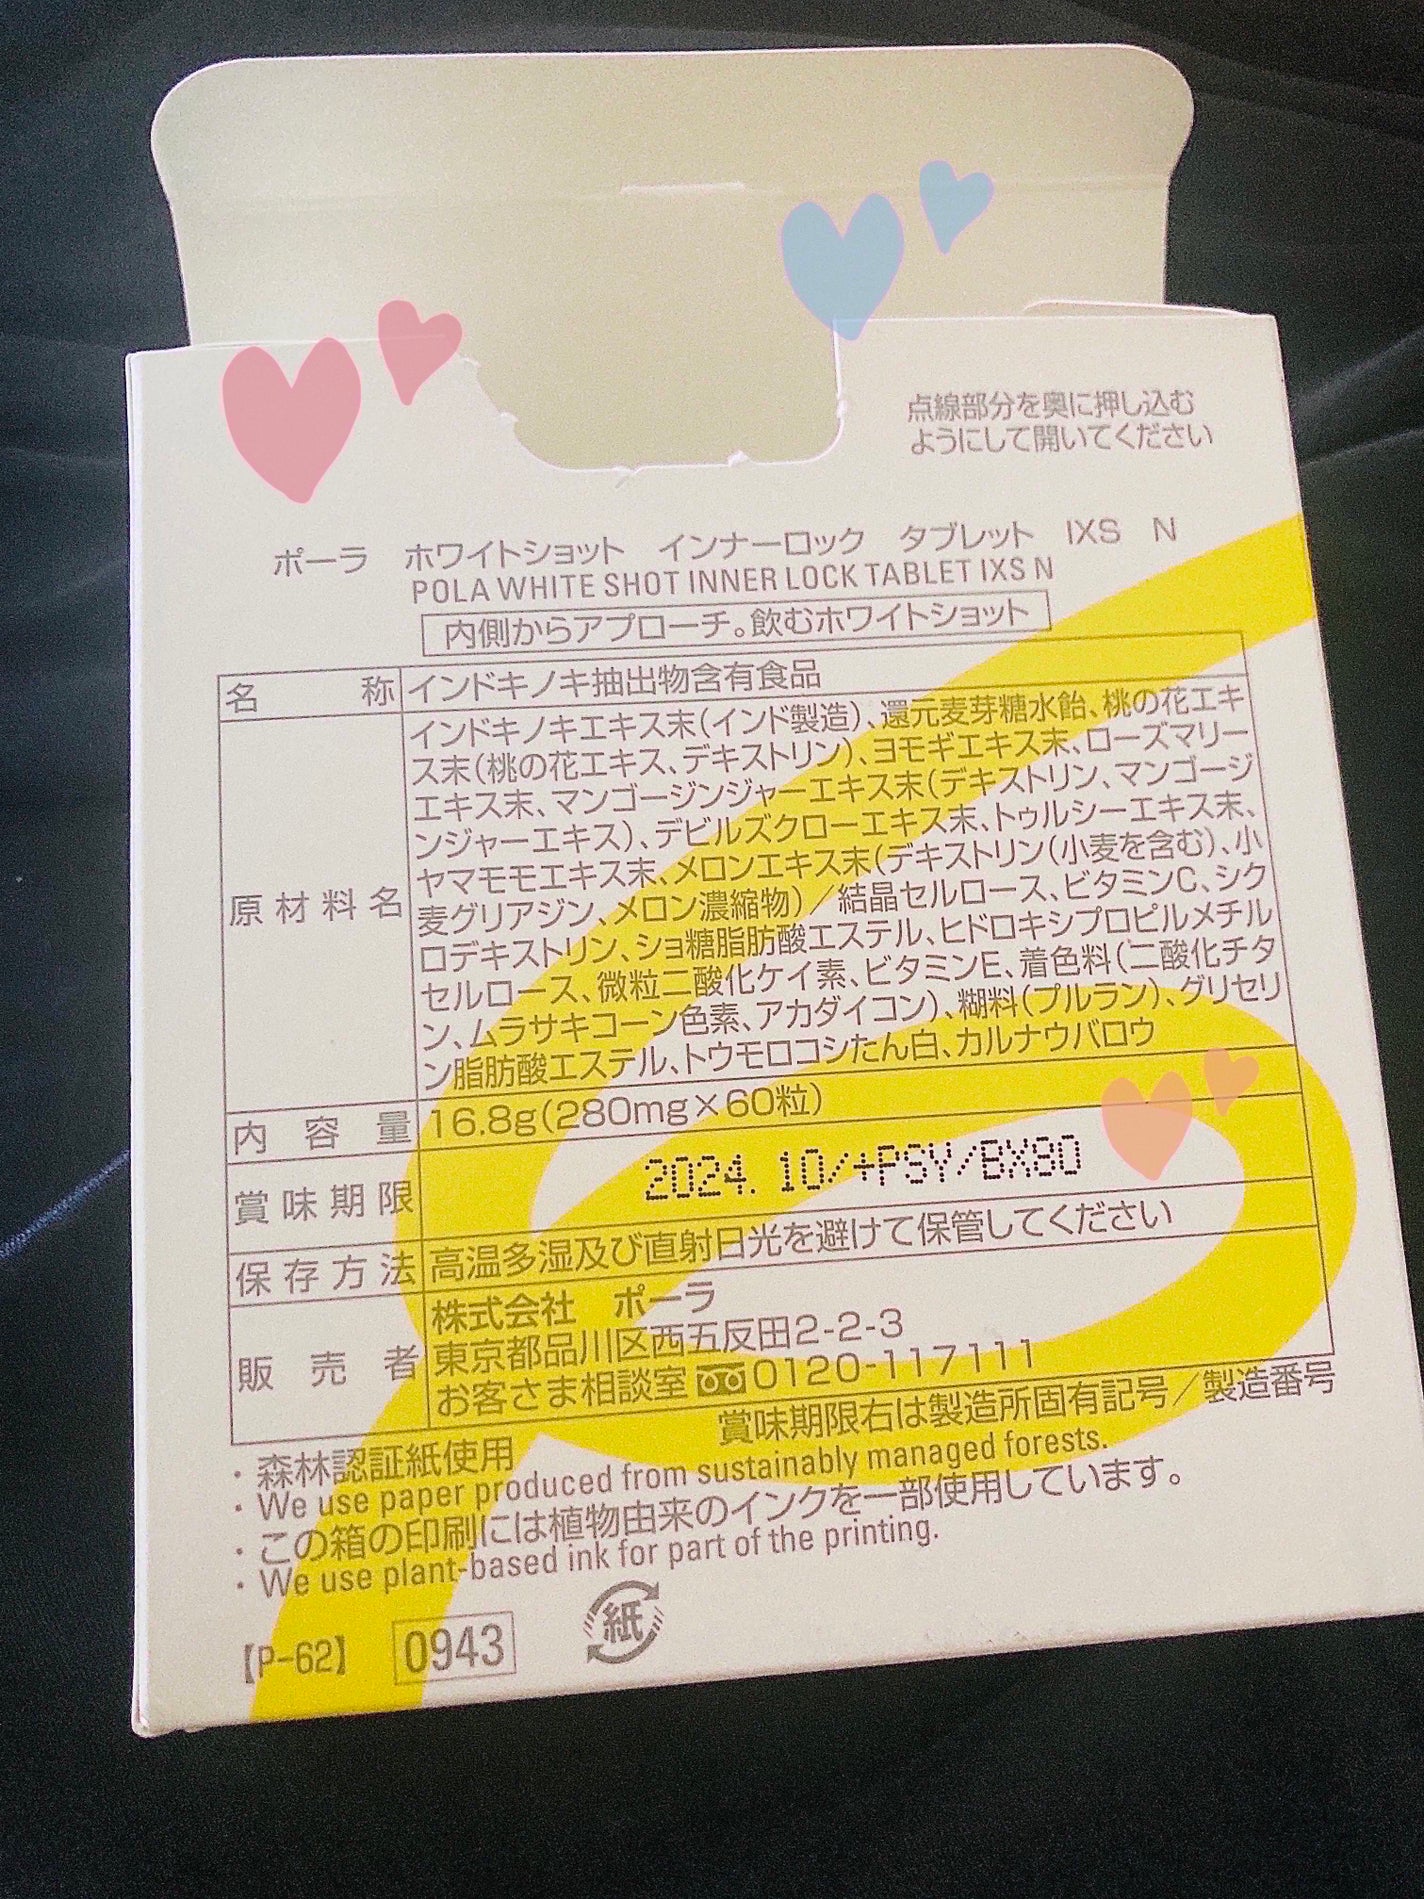 点線部分を奥に押し込む
ようにして開いてください
ポーラ ホワイトショット インナーロック タブレット IXS N
POLA WHITE SHOT INNER LOCK TABLET IXS N
内側からアプローチ。飲むホワイトショット
名 称 インドキノキ抽出物含有食品
原材料名 インドキノキエキス末(インド製造)、還元麦芽糖水飴、桃の花エキ
ス末(桃の花エキス、デキストリン)、ヨモギエキス末、ローズマリー
エキス末、マンゴージンジャーエキス末(デキストリン、マンゴージ
ンジャーエキス)、デビルズクローエキス末、トゥルシーエキス末、
ヤマモモエキス末、メロンエキス末(デキストリン(小麦を含む)、小
麦グリアジン、メロン濃縮物)/結晶セルロース、ビタミンC、シク
ロデキストリン、ショ糖脂肪酸エステル、ヒドロキシプロピルメチル
セルロース、微粒二酸化ケイ素、ビタミンE、着色料(二酸化チタ
ン、ムラサキコーン色素、アカダイコン)、糊料(プルラン)、グリセリ
ン脂肪酸エステル、トウモロコシたん白、カルナウバロウ
内容量 16.8g(280mg×60粒)
賞味期限 2024. 10/+PSY/BX80
保存方法 高温多湿及び直射日光を避けて保管してください
販売者 株式会社 ポーラ
東京都品川区西五反田2-2-3
お客さま相談室 0120-117111
賞味期限右は製造所固有記号/製造番号
・森林認証紙使用
・We use paper produced from sustainably managed forests.
・この箱の印刷には植物由来のインクを一部使用しています。
・We use plant-based ink for part of the printing.
【P-62】 0943 紙